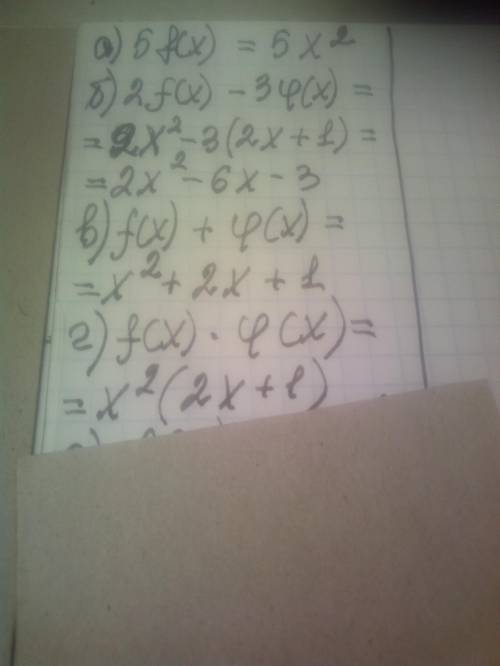 а) 5 f(x) = 5x²
б) 2 f(x) - 3φ(x) =
= 2x² - 3(2x + 1) =
= 2x² - 6x - 3
в) f(x) + φ(x) =
= x² + 2x + 1
г) f(x) · φ(x) =
= x²(2x + 1)